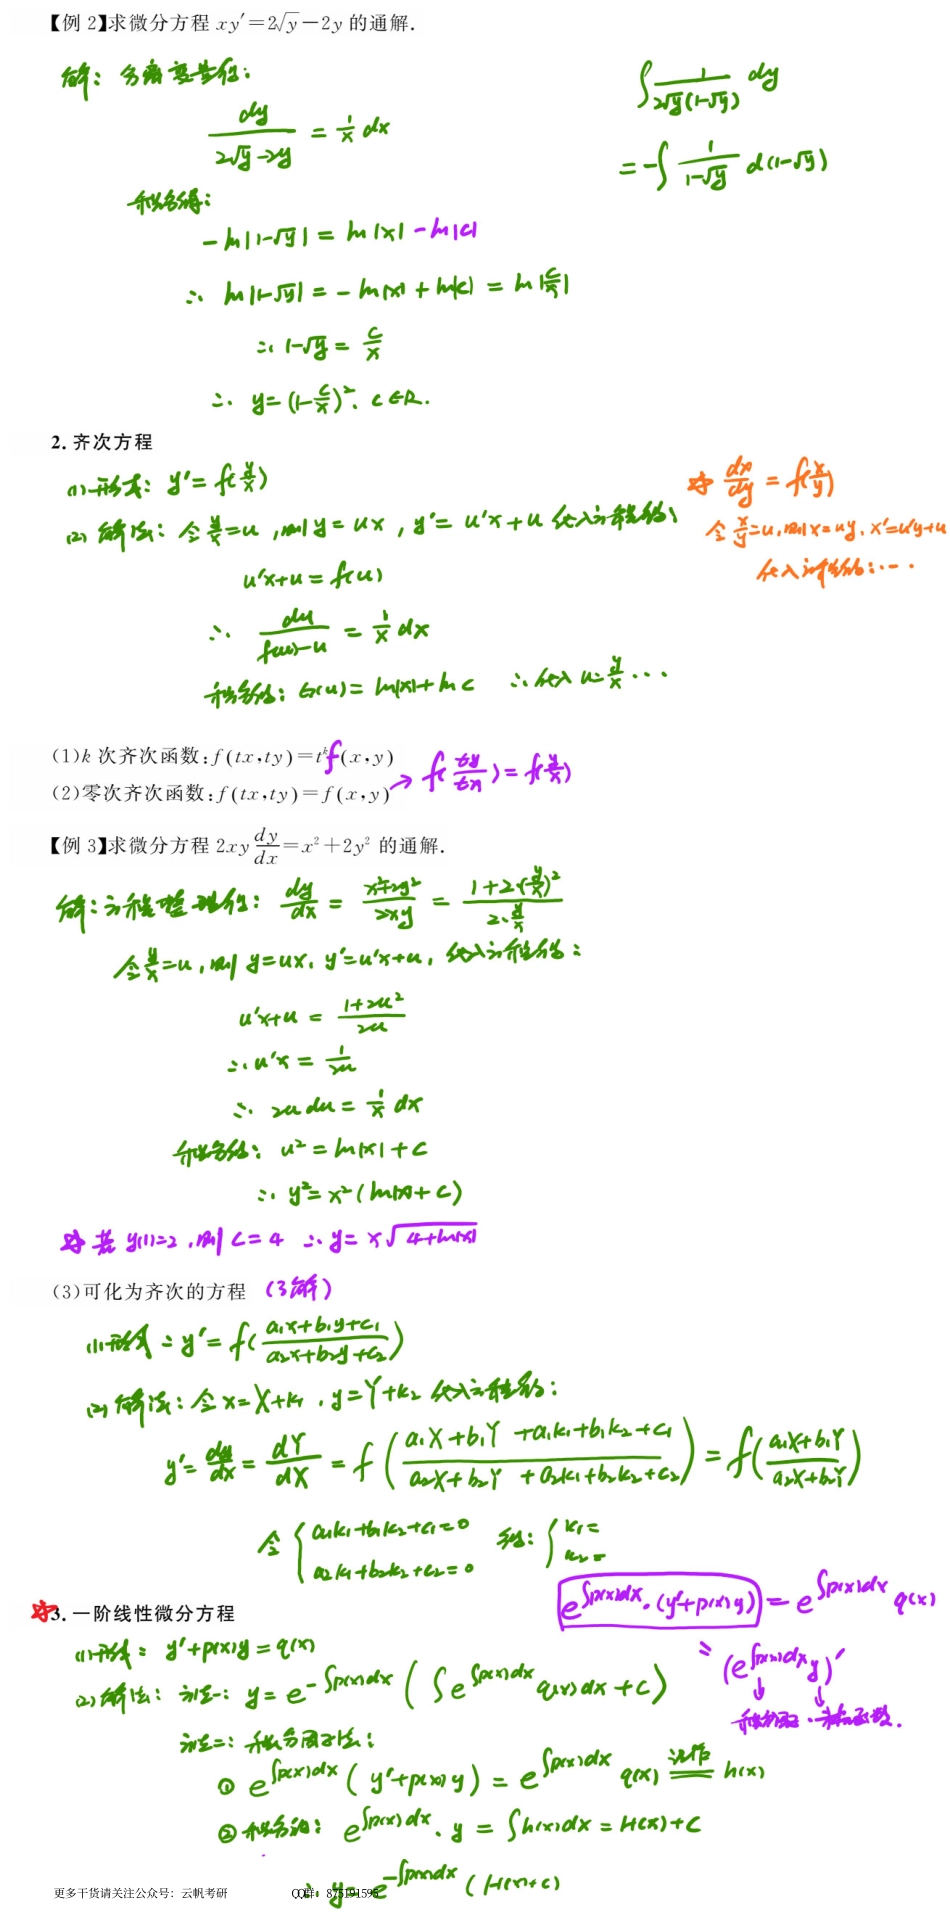 【例 2】求微分方程 xy′=2√y−2y 的通解.
解: 分离变量得:
dy/(2√y−2y) = 1/x dx
∫ 1/(2√y(1−√y)) dy
= −∫ 1/(1−√y) d(1−√y)
积分得:
−ln|1−√y| = ln|x| −ln|c|
∴ ln|1−√y| = −ln|x| + ln|c| = ln|c/x|
∴ 1−√y = c/x
∴ y=(1−c/x)², c∈R.
2. 齐次方程
(1)形式: y′= f(y/x)
(2)解法: 令 y/x=u, 则 y=ux, y′= u′x+u 代入方程得:
u′x+u = f(u)
∴ du/(f(u)−u) = 1/x dx
积分得: G(u)= ln|x|+ln c ∴代入 u=y/x ···
dx/dy = f(x/y)
令 x/y=u, 则 x=uy, x′=u′y+u
代入方程得: ···
(1)k 次齐次函数:f(tx,ty)=tᵏf(x,y)
(2)零次齐次函数:f(tx,ty)=f(x,y) → f(ty/tx)=f(y/x)
【例 3】求微分方程 2xy dy/dx=x²+2y² 的通解.
解:方程整理得: dy/dx = (x²+2y²)/(2xy) = (1+2·(y/x)²)/(2·y/x)
令 y/x=u, 则 y=ux, y′=u′x+u, 代入方程得:
u′x+u = (1+2u²)/(2u)
∴ u′x = 1/(2u)
∴ 2u du = 1/x dx
积分得: u² = ln|x|+c
∴ y²= x²(ln|x|+c)
若 y(1)=2, 则 c=4 ∴ y= x√(4+ln|x|)
(3)可化为齐次的方程 (了解)
(1)形式: y′= f((a₁x+b₁y+c₁)/(a₂x+b₂y+c₂))
(2)解法: 令 x=X+k₁, y=Y+k₂ 代入方程得:
y′= dy/dx = dY/dX = f((a₁X+b₁Y+a₁k₁+b₁k₂+c₁)/(a₂X+b₂Y+a₂k₁+b₂k₂+c₂)) = f((a₁X+b₁Y)/(a₂X+b₂Y))
令 { a₁k₁+b₁k₂+c₁=0
a₂k₁+b₂k₂+c₂=0
得: { k₁=
k₂=
3. 一阶线性微分方程
e^∫p(x)dx·(y′+p(x)y) = e^∫p(x)dx q(x)
= (e^∫p(x)dx y)′
积分因子·未知函数.
(1)形式: y′+p(x)y=q(x)
(2)解法: 方法一: y= e^−∫p(x)dx (∫e^∫p(x)dx q(x)dx+c)
方法二: 积分因子法:
① e^∫p(x)dx (y′+p(x)y) = e^∫p(x)dx q(x) 记作 h(x)
②积分得: e^∫p(x)dx·y = ∫h(x)dx = H(x)+c
∴ y= e^−∫p(x)dx (H(x)+c)
更多干货请关注公众号: 云帆考研 QQ群: 875191596